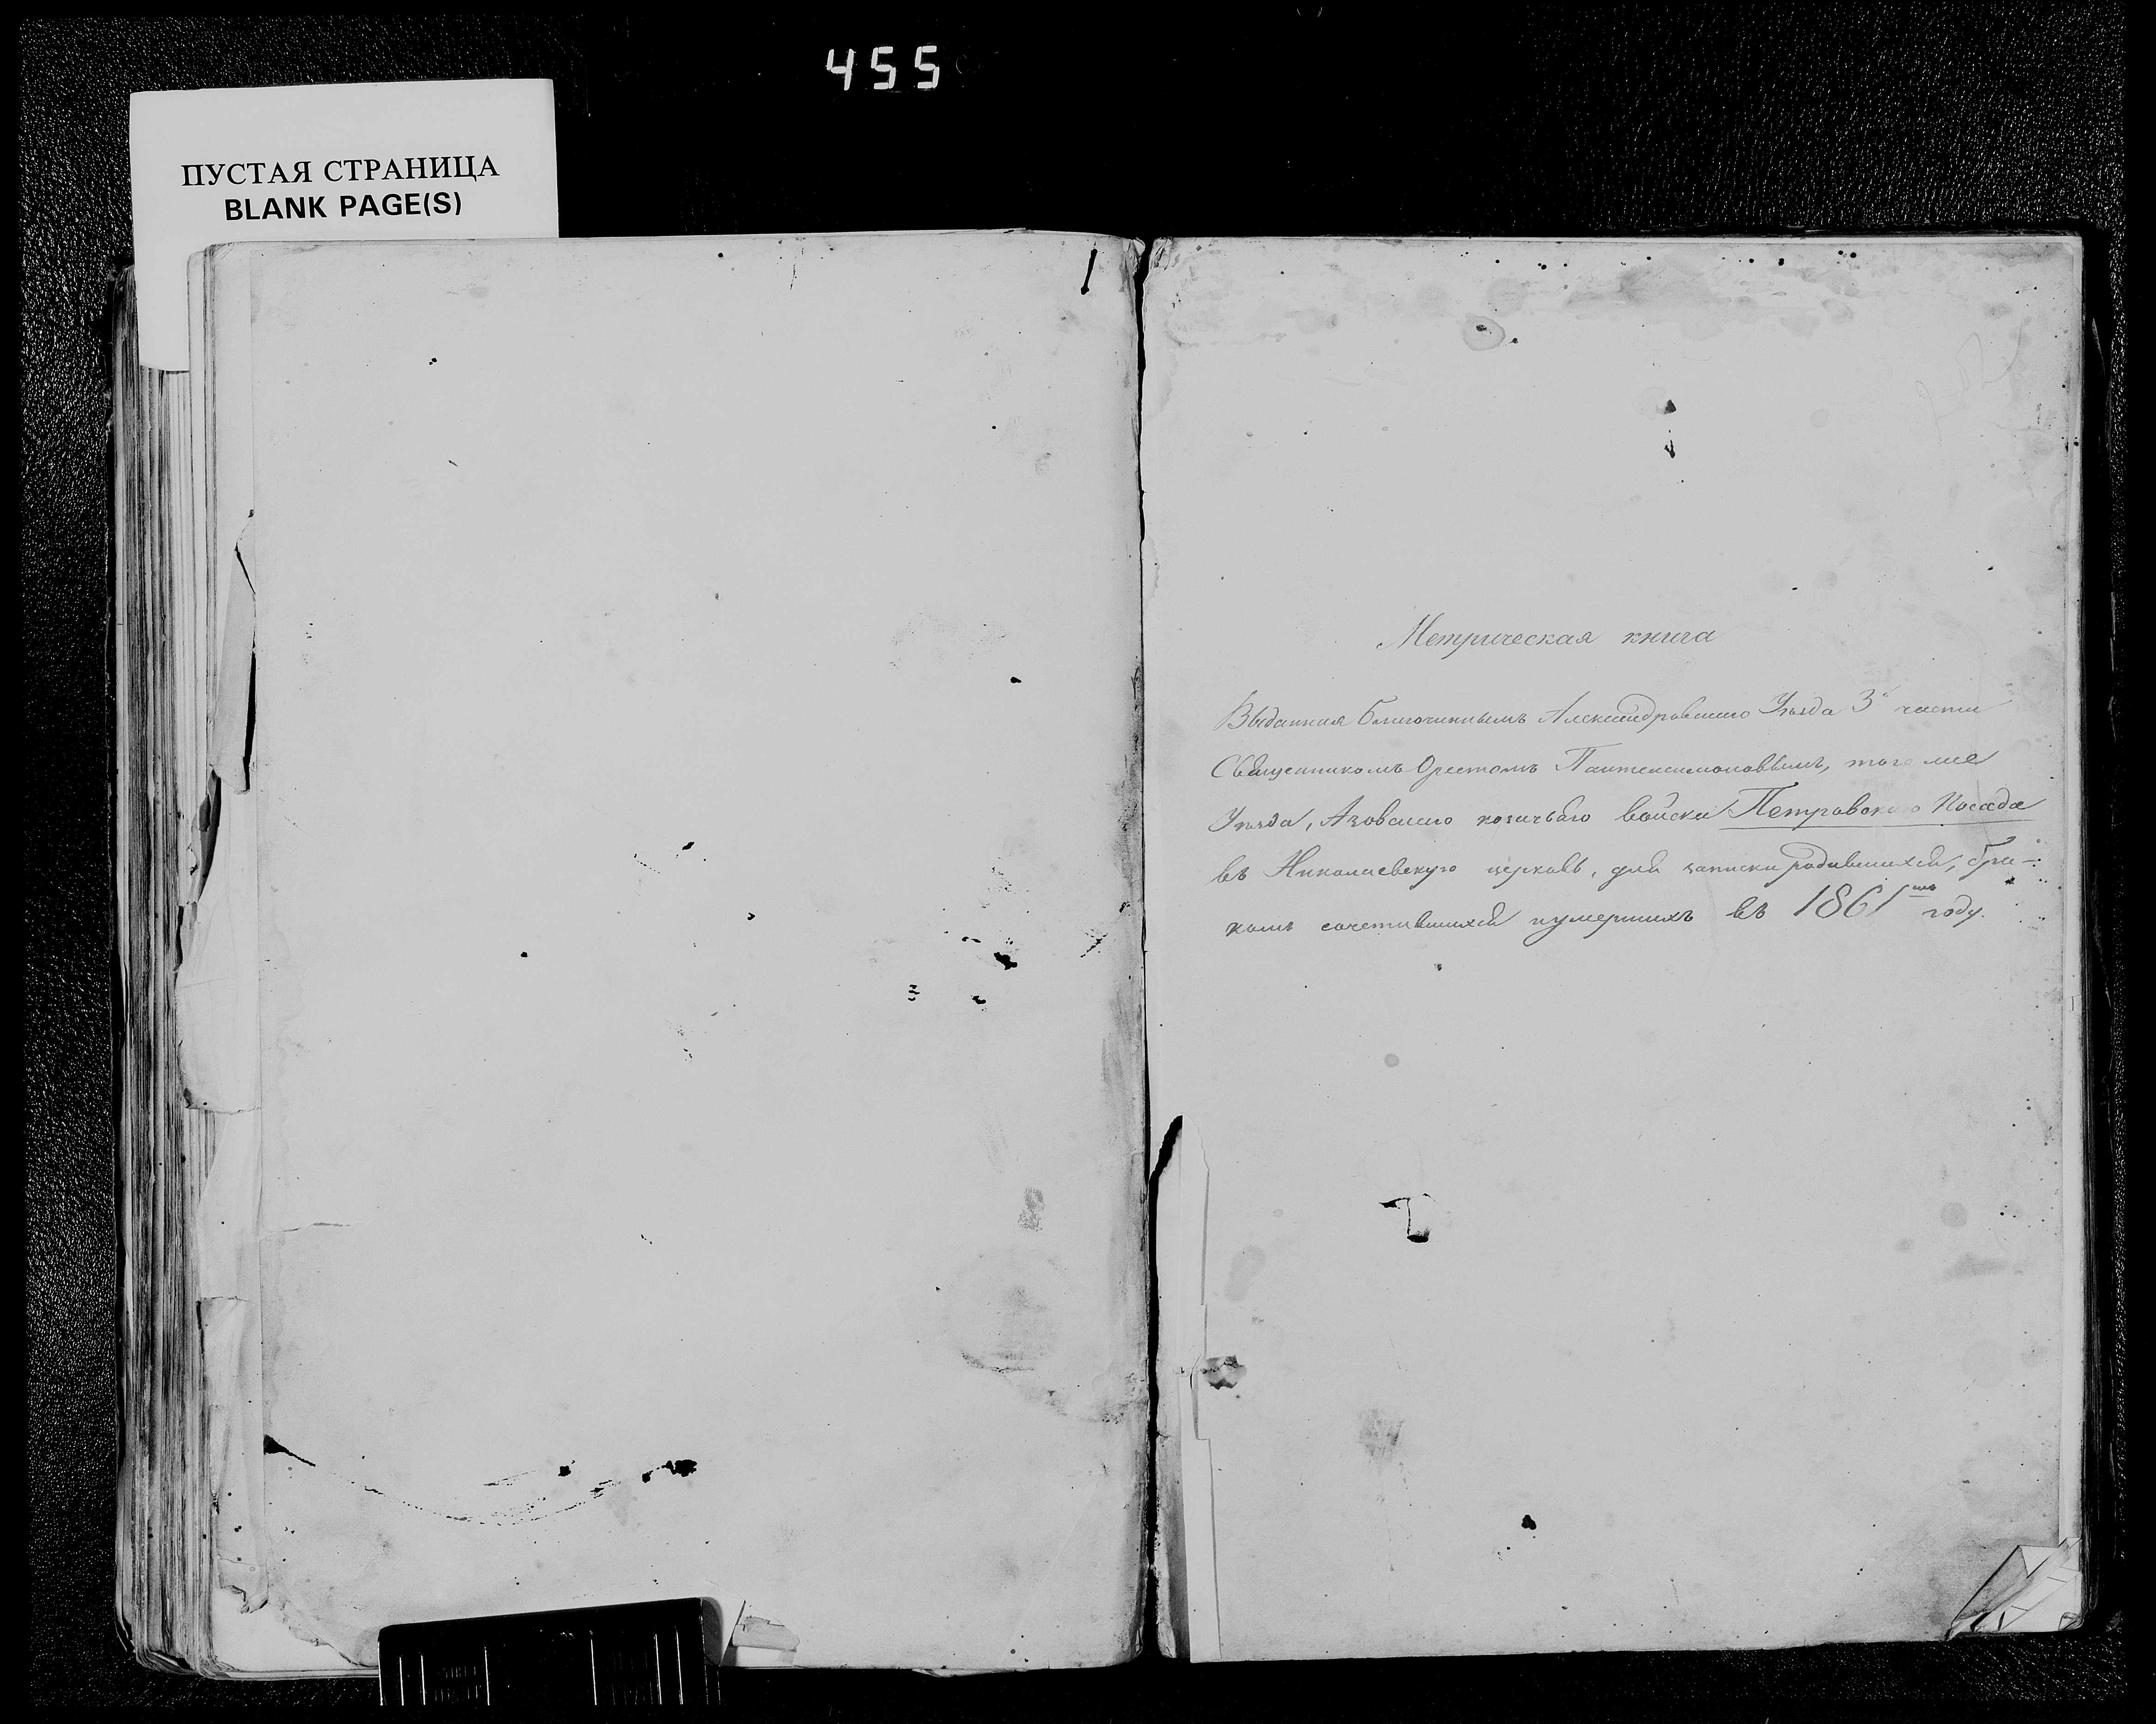 455
ПУСТАЯ СТРАНИЦА
BLANK PAGE(S)
Метрическая книга
Выданная Благочиннымъ Александровскаго Уѣзда 3й части
Священникомъ Орестомъ Пантелеимоновымъ, того же
Уѣзда, Азовскаго козачьаго войска Петровскаго Посада
въ Николаевскую церковь, для записки родившихся, бра-
комъ сочетавшихся и умершихъ въ 1861мъ году.